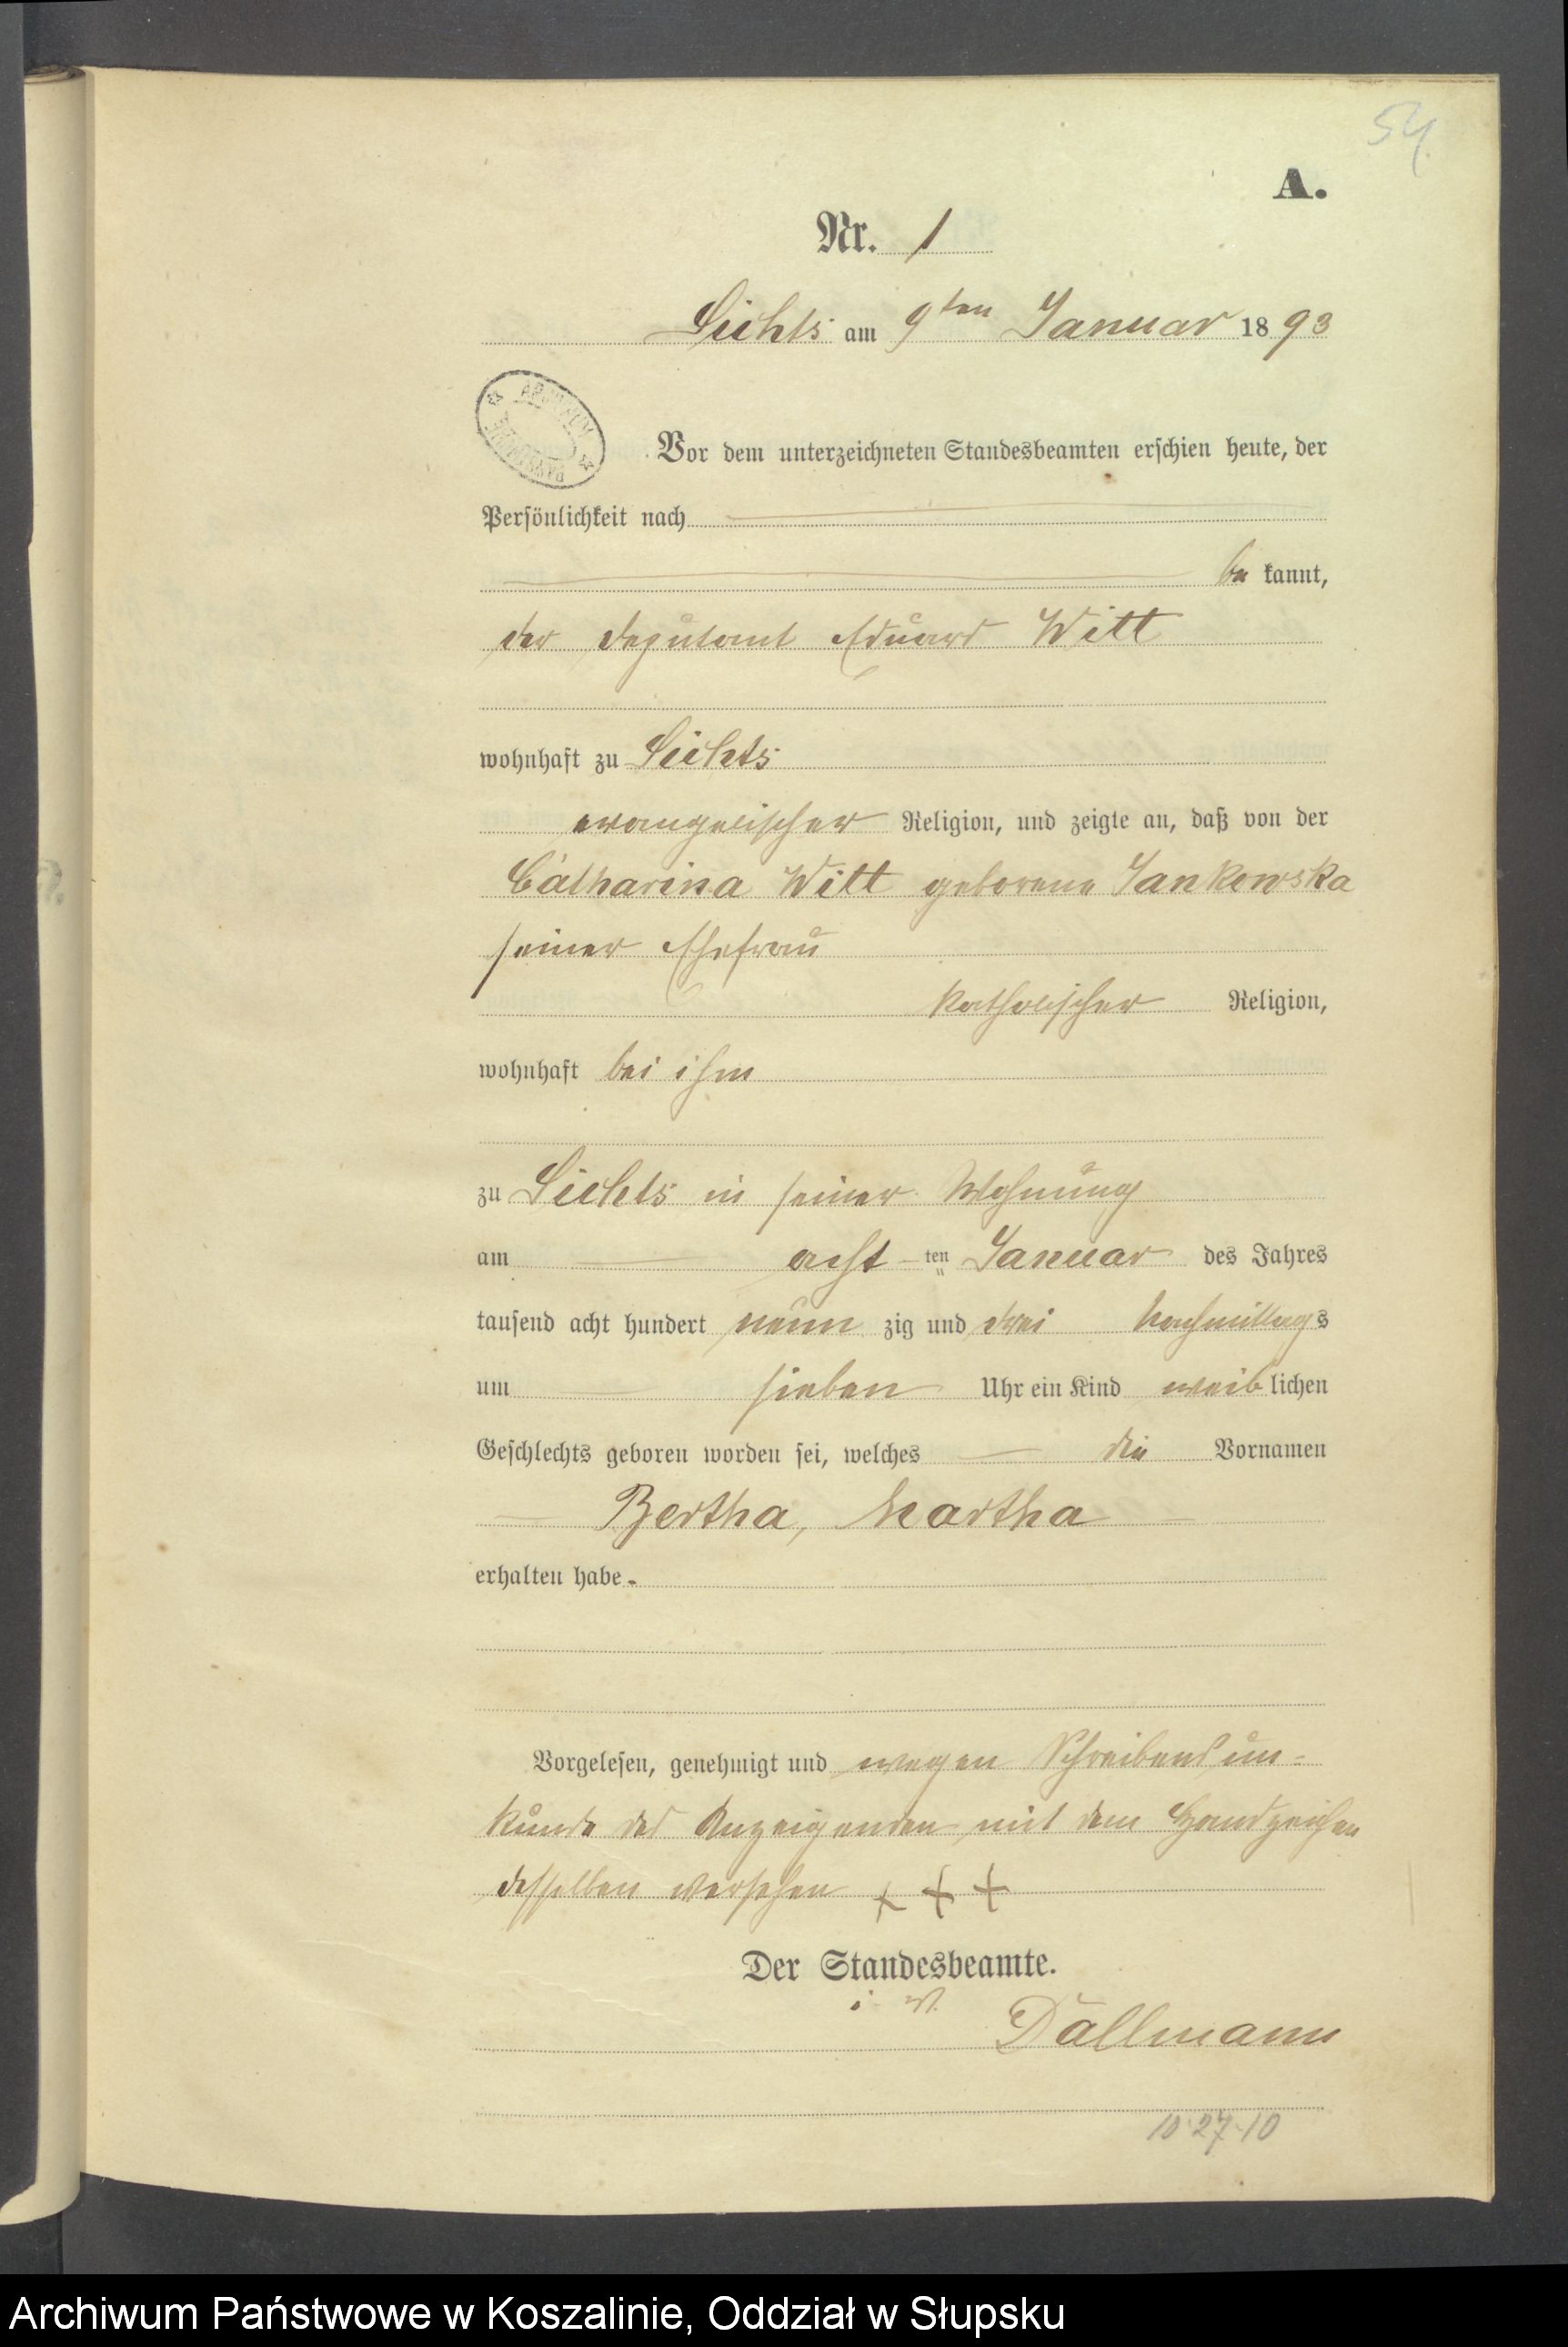 54.
A.
Nr. 1
Sichts am 9ten Januar 1893
Vor dem unterzeichneten Standesbeamten erschien heute, der
Persönlichkeit nach
be kannt,
der Deputant Eduard Witt
wohnhaft zu Sichts
evangelischer Religion, und zeigte an, daß von der
Catharina Witt geborene Jankowska
seiner Ehefrau
katholischer Religion,
wohnhaft bei ihm
zu Sichts in seiner Wohnung
am acht ten Januar des Jahres
tausend acht hundert neun zig und drei Nachmittags
um sieben Uhr ein Kind weib lichen
Geschlechts geboren worden sei, welches die Vornamen
Bertha, Martha
erhalten habe.
Vorgelesen, genehmigt und wegen Schreibensun-
kunde des Anzeigenden mit dem Handzeichen
desselben versehen + + +
Der Standesbeamte.
i. V.
Dallmann
10·27·10
Archiwum Państwowe w Koszalinie, Oddział w Słupsku